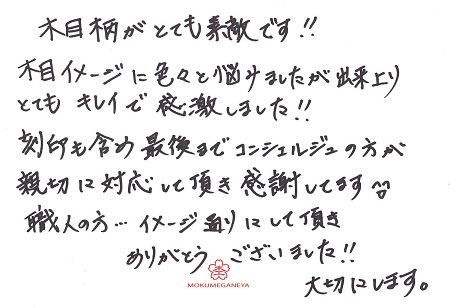 木目柄がとても素敵です!!
木目イメージに色々と悩みましたが出来上り
とても キレイで 感激しました!!
刻印も含め 最後まで コンシェルジュの方が
親切に対応して頂き 感謝してます
職人の方… イメージ通りにして頂き
ありがとう ございました!!
MOKUMEGANEYA
大切にします。